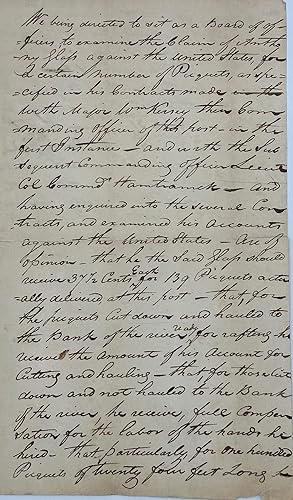 We being directed to set as a Board of of-
ficers to examine the Claim of Antho
ny Glass against the United States, for
a certain number of Picquets, as spe-
=cified in his Contracts made in the
with Major Wm Kersey then Com
manding Officer of this post - in the
first Instance - and with the Sub
sequent Commanding Officer Lieut
Col Commdt Hamtramck - And
having enquired into the several Con
tracts, and examined his Accounts
against the United States - Are of
Opinion - that he the said Glass should
receive 37½ Cents Each for 139 Picquets actu
ally delivered at this post - that, for
the picquets Cut down and hauled to
the Bank of the river ready for rafting he
receive the Amount of his Account for
Cutting and hauling - that for those cut
down and not hauled to the Bank
of the river, he receive, full Compen
sation for the labor of the hands he
hired - that particularly for one hundred
Picquets of twenty four feet Long he